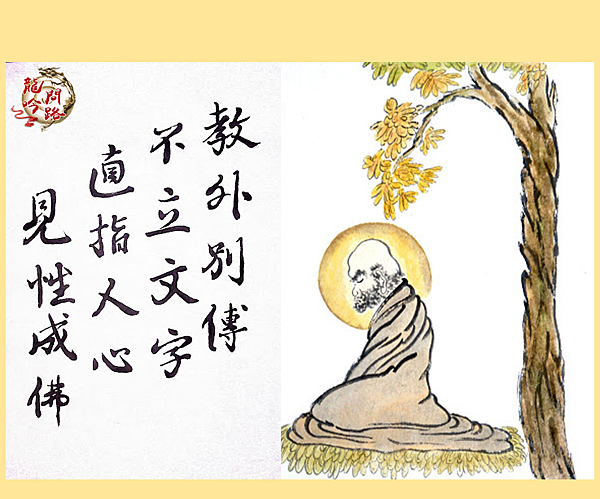 教外別傳
不立文字
直指人心
見性成佛
龍吟
問路